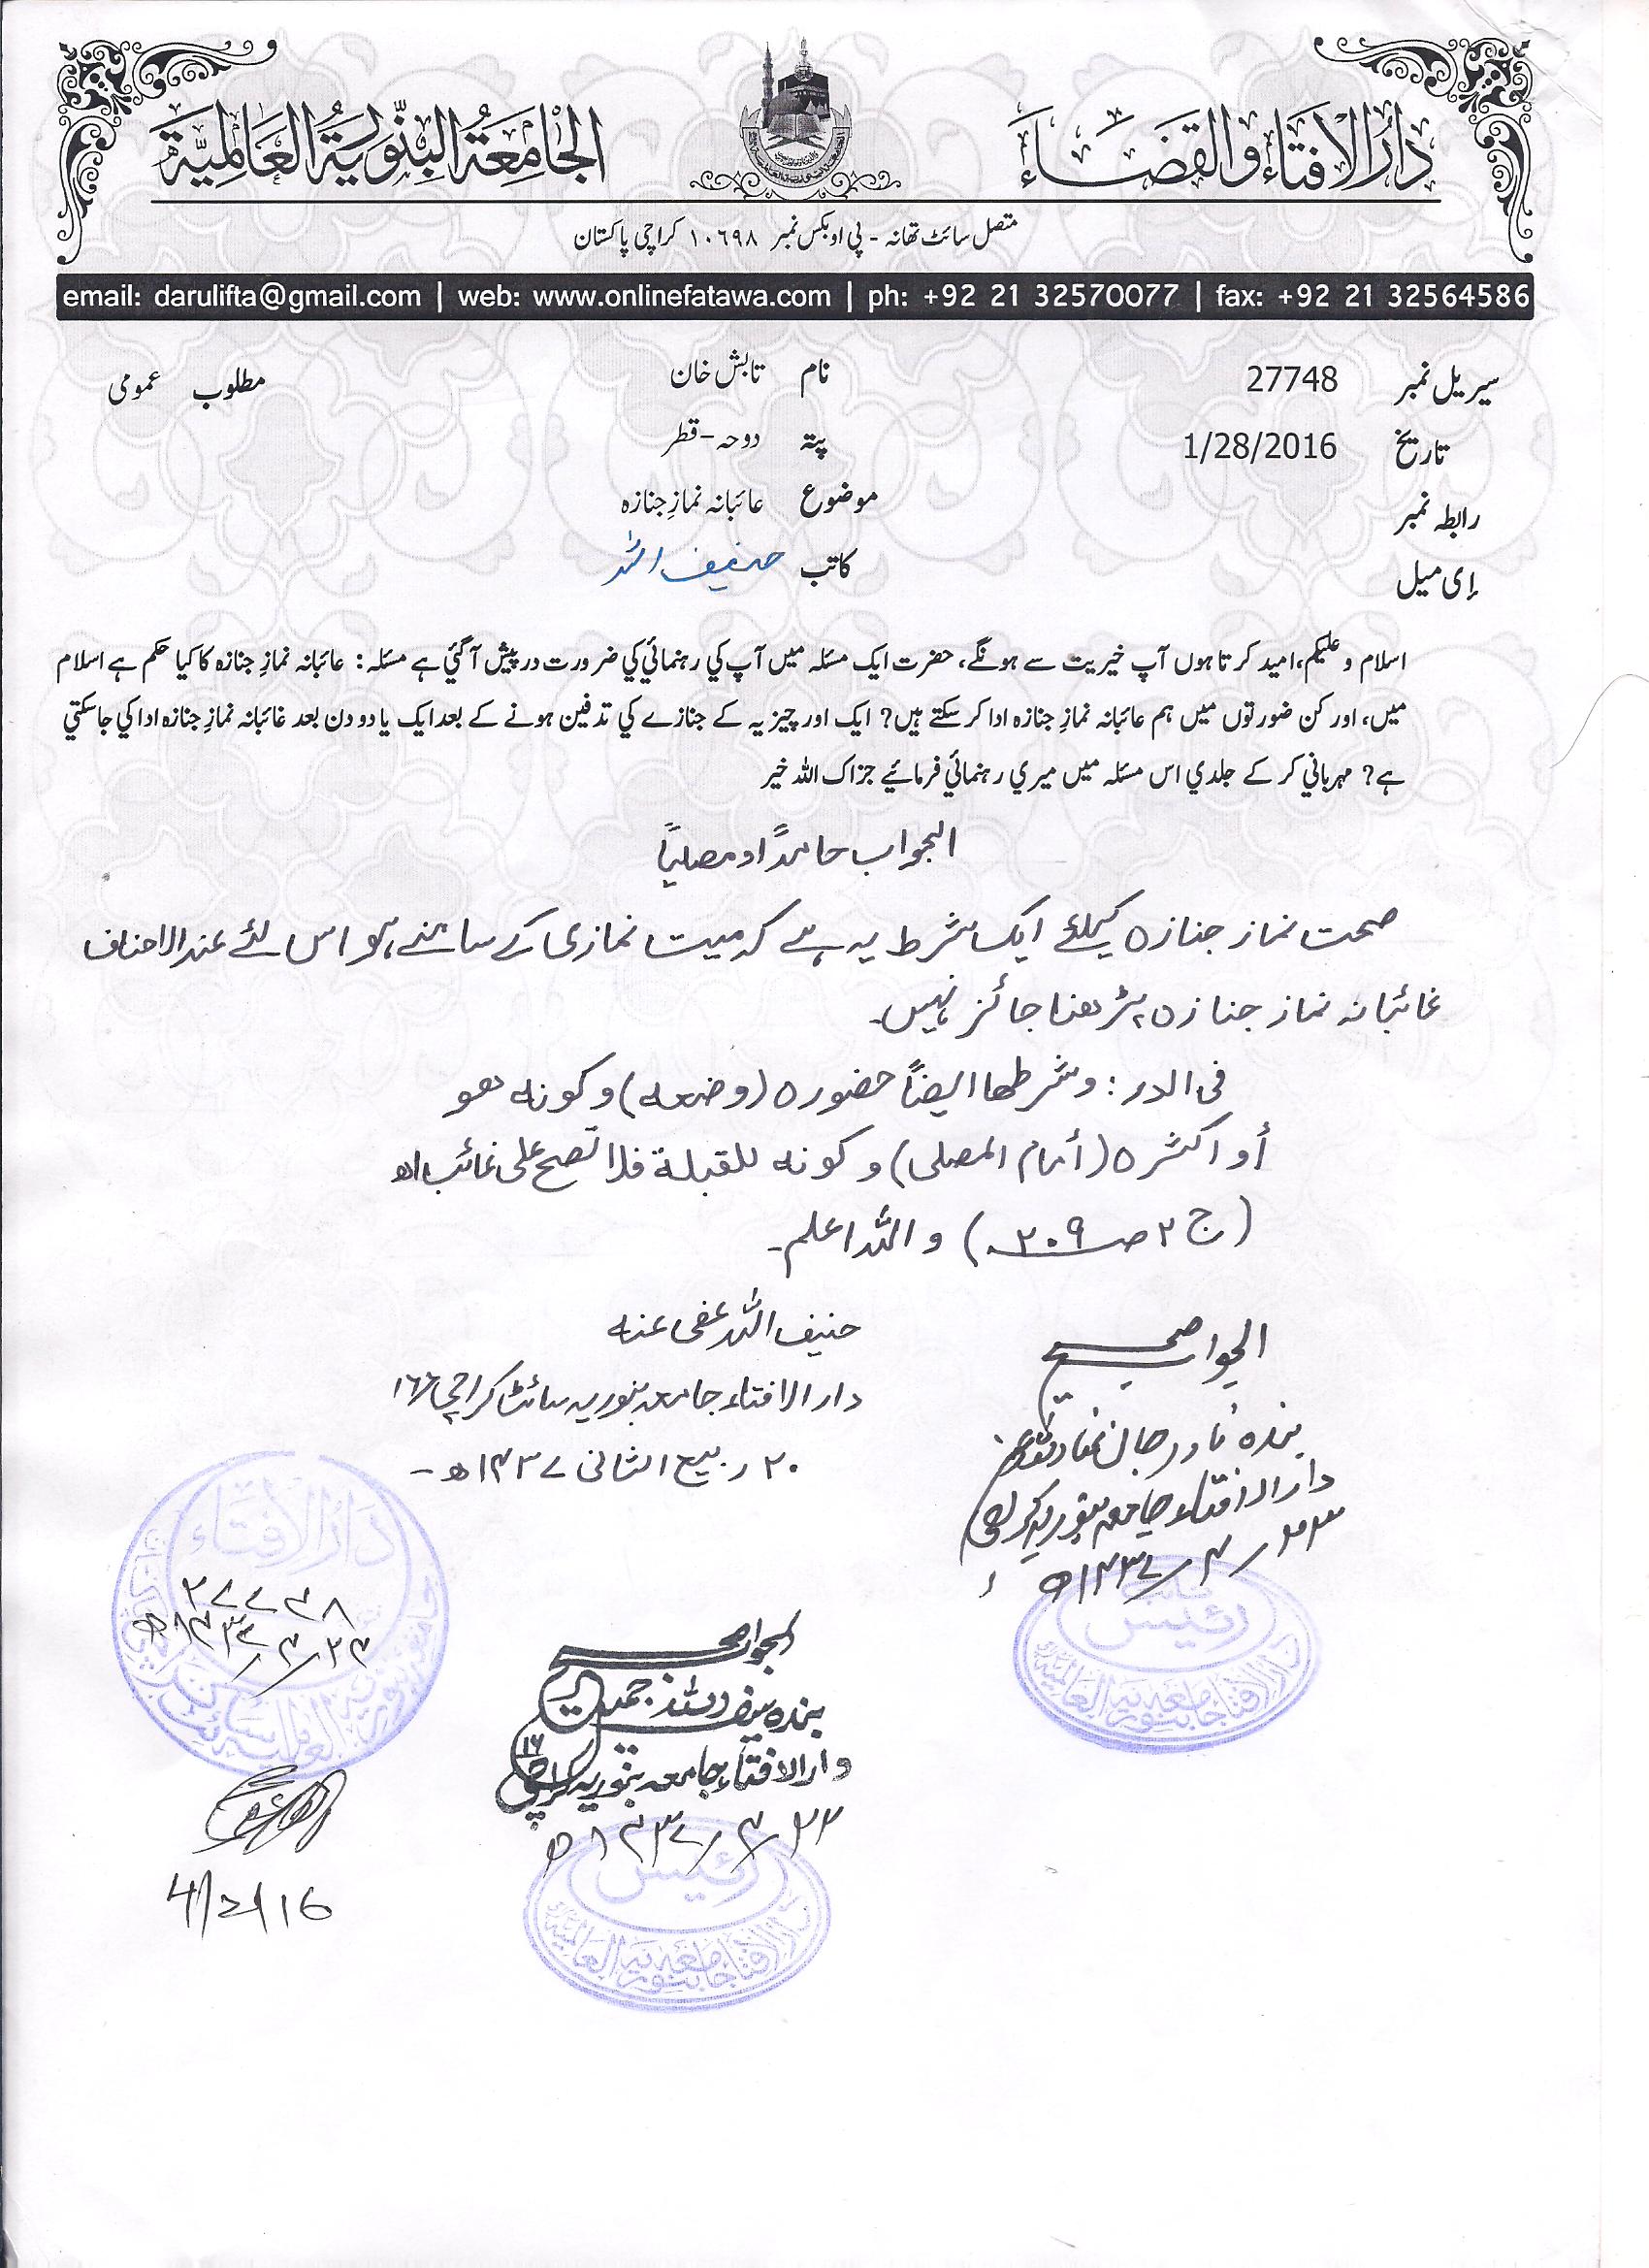 دَارُ الاِفتَاء وَالقَضَاء
الجَامِعَةُ البِنُّورِيَّةُ العَالَمِيَّة
متصل سائٹ تھانہ - پی او بکس نمبر ۱۰۶۹۸ کراچی پاکستان
email: darulifta@gmail.com | web: www.onlinefatawa.com | ph: +92 21 32570077 | fax: +92 21 32564586
سیریل نمبر 27748 نام تابش خان مطلوب عمومی
تاریخ 1/28/2016 پتہ دوحہ-قطر
رابطہ نمبر موضوع غائبانہ نمازِ جنازہ
اِی میل کاتب حنیف اللہ
اسلام و علیکم، امید کرتا ہوں آپ خیریت سے ہونگے، حضرت ایک مسئلہ میں آپ کي رہنمائي کي ضرورت درپیش آگئي ہے مسئلہ: غائبانہ نمازِ جنازہ کا کیا حکم ہے اسلام
میں، اور کن ضورتوں میں ہم غائبانہ نمازِ جنازہ ادا کر سکتے ہیں? ایک اور چیز یہ کے جنازے کي تدفین ہونے کے بعد ایک یا دو دن بعد غائبانہ نمازِ جنازہ ادا کي جاسکتي
ہے? مہرباني کر کے جلدي اس مسئلہ میں میري رہنمائي فرمائیے جزاک اللہ خیر
الجواب حامدًا و مصلیًا
صحت نماز جنازہ کیلئے ایک شرط یہ ہے کہ میت نمازی کے سامنے ہو اس لئے عند الاحناف
غائبانہ نماز جنازہ پڑھنا جائز نہیں۔
فی الدر: وشرطها ایضًا حضورہ (وضعه) و کونه هو
أو اکثرہ (أمام المصلی) و کونه للقبلة فلا تصح علی غائب اھ
(ج ۲ صـ ۲۰۹) واللہ اعلم۔
حنیف اللہ عفی عنہ
دار الافتاء جامعہ بنوریہ سائٹ کراچی ۱۶
۲۰ ربیع الثانی ۱۴۳۷ھ
الجواب صحیح
بندہ نادر جان
دار الافتاء جامعہ بنوریہ کراچی
۲۳/۴/۱۴۳۷ھ
رئیس
دار الافتاء جامعہ بنوریہ العالمیہ
دَارُ الاِفتَاء
۲۷۷۴۸
الجواب صحیح
بندہ سیف اللہ جمیل
دار الافتاء جامعہ بنوریہ کراچی ۱۶
۲۲/۴/۱۴۳۷ھ
رئیس
دار الافتاء جامعہ بنوریہ العالمیہ
4/2/16